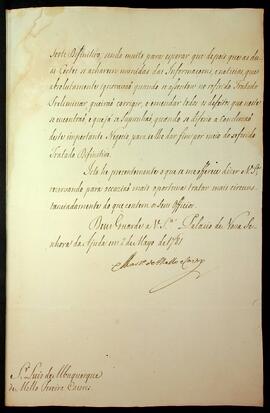 sorte Difinitivo; sendo muito para esperar que depois que as du-
as Cortes se acharem munidas das Informaçoens, e noticias, que
absolutamente ignoravaõ quando se ajustou no referido Tratado
Preliminar, queiraõ corrigir, e emendar todos os defeitos que neste
se encontraõ, e que já se suppunhaõ, quando se diferio a concluzaõ
deste importante Negocio para se lhe dar fim por meio do referido
Tratado Difinitivo.
Isto he prezentemente o que se me offerece dizer a V. S.ª
rezervando para occaziaõ mais oportuna tratar mais circuns-
tanciadamente do que contem o Seu Officio.
Deos Guarde a V. S.ª Palacio de Nossa Se-
nhora da Ajuda em 2 de Mayo de 1781
Mart.º de Mello e Castro
S.r Luis de Albuquerque
de Mello Pereira Caceres